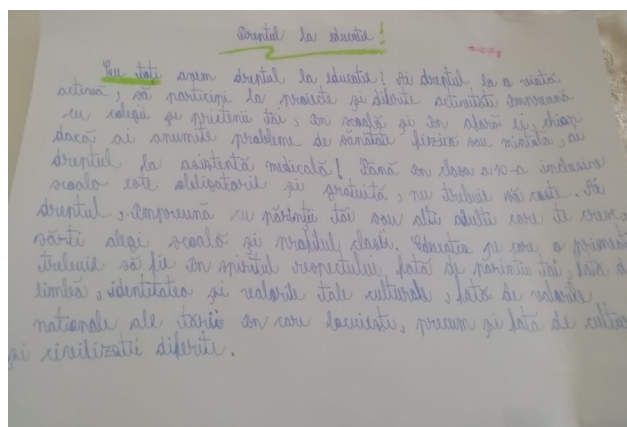 Dreptul la educatie!
Cu toți avem dreptul la educatie! Ai dreptul la o viată
activă, să participi la proiecte și diferite activităti împreună
cu colegii și prietenii tăi, în scoală și în afară ei, chiar
dacă ai anumite probleme de sănătate fizică sau mintală, ai
dreptul la asistentă medicală! Până în clasa a-x-a inclusiv
scoala este obligatorie și gratuită, nu trebuie să coste. Ai
dreptul, împreună cu părintii tăi sau alti adulti care te cresc,
săti alegi scoală și profilul clasei. Educatia pe care o primesti
trebuie să fie în spiritul respectului fată de părintii tăi, fată d
limbă, identitatea și valorile tale culturale, fată de valorile
nationale ale tării în care locuiesti, precum și fată de culturi
și civilizatii diferite.